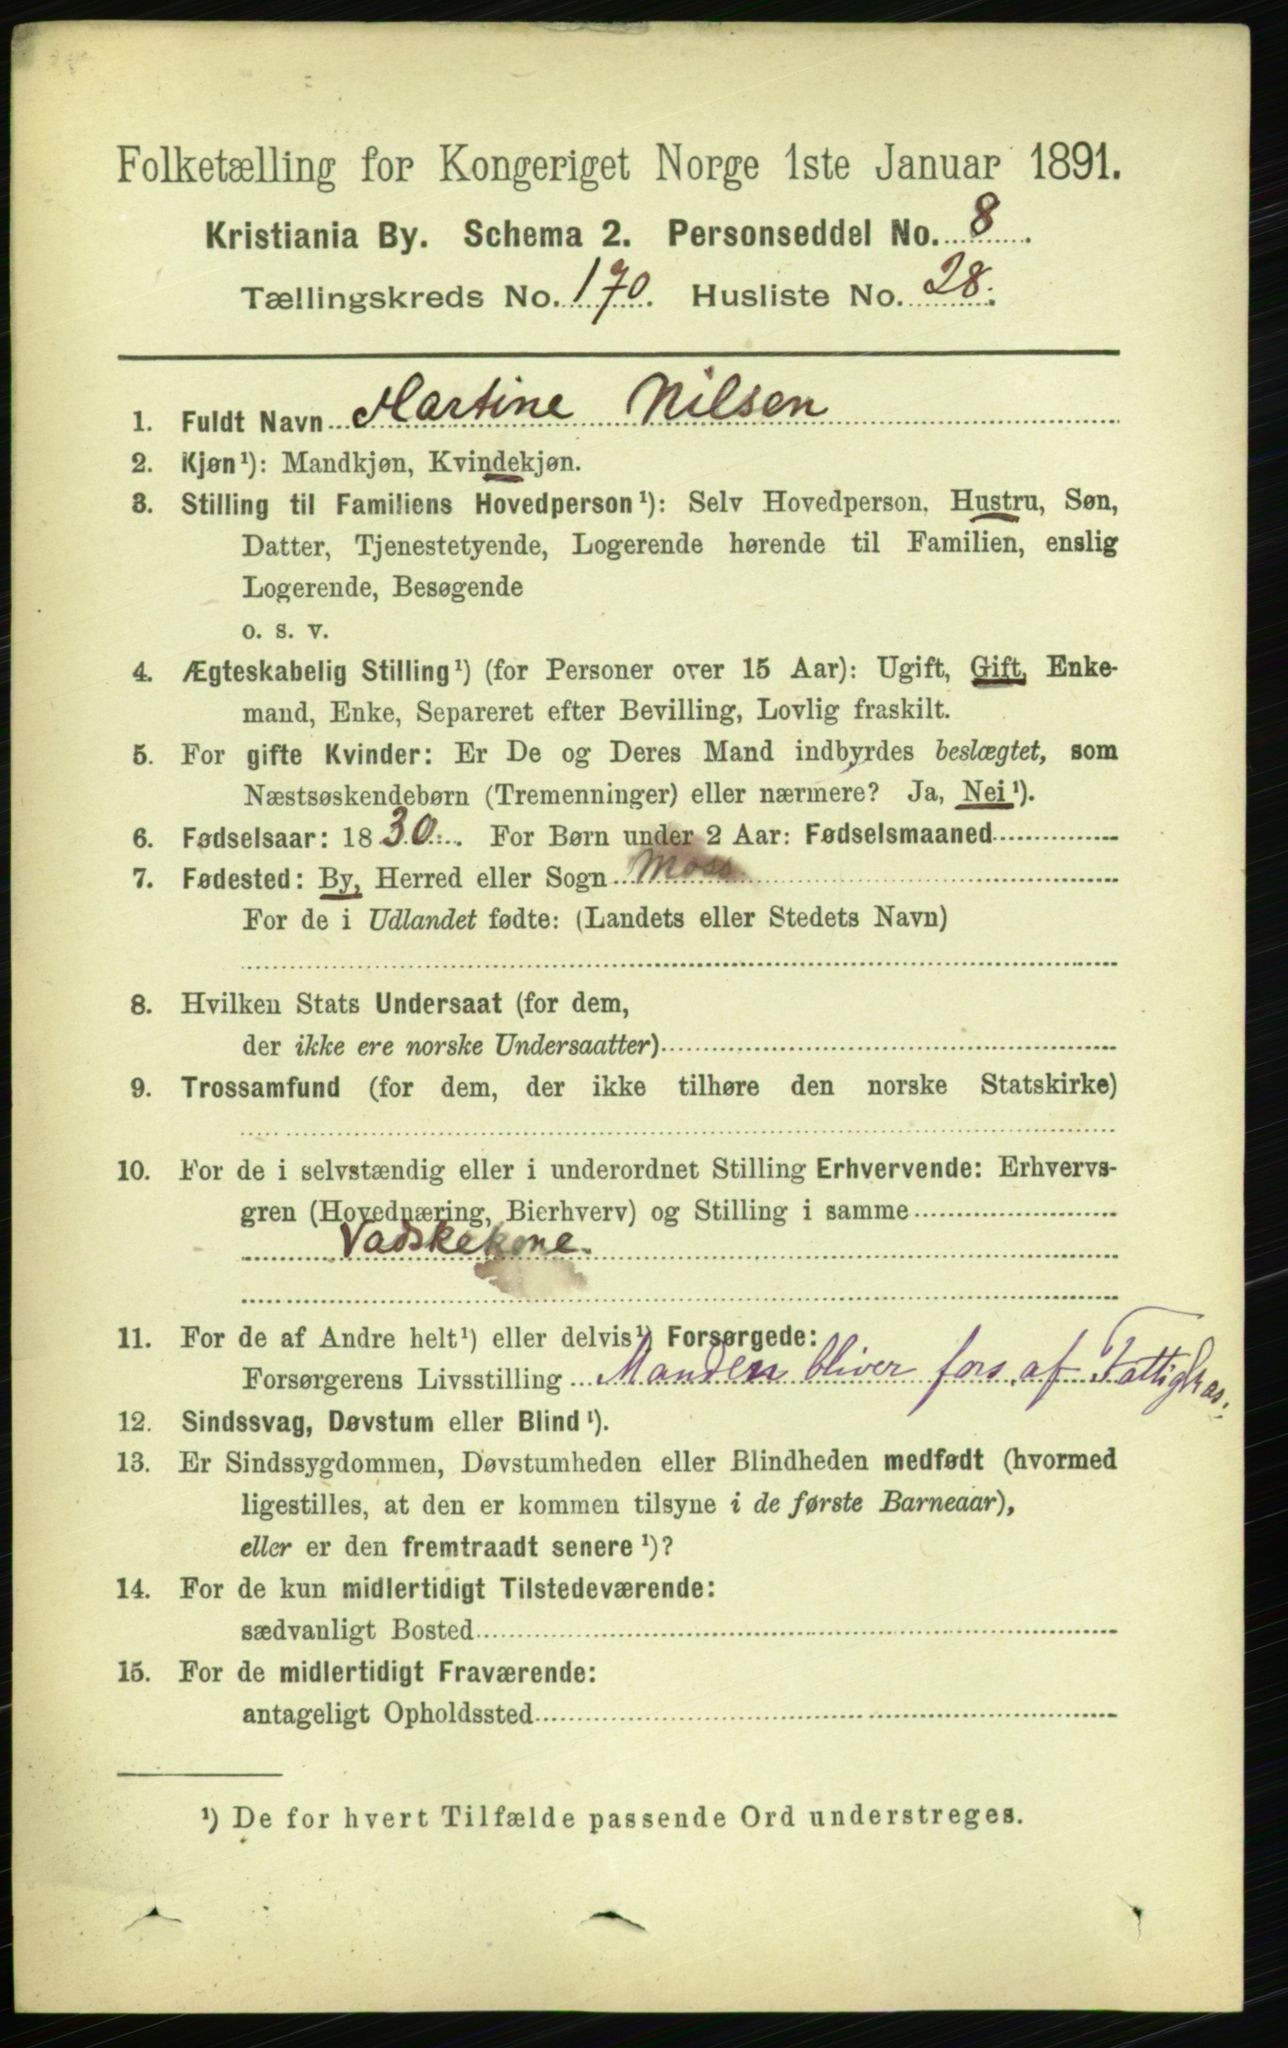 Folketælling for Kongeriget Norge 1ste Januar 1891.
Kristiania By. Schema 2. Personseddel No. 8.
Tællingskreds No. 170. Husliste No. 28.
1. Fuldt Navn Martine Nilsen
2. Kjøn¹): Mandkjøn, Kvindekjøn.
3. Stilling til Familiens Hovedperson¹): Selv Hovedperson, Hustru, Søn,
Datter, Tjenestetyende, Logerende hørende til Familien, enslig
Logerende, Besøgende
o. s. v.
4. Ægteskabelig Stilling¹) (for Personer over 15 Aar): Ugift, Gift, Enke-
mand, Enke, Separeret efter Bevilling, Lovlig fraskilt.
5. For gifte Kvinder: Er De og Deres Mand indbyrdes beslægtet, som
Næstsøskendebørn (Tremenninger) eller nærmere? Ja, Nei¹).
6. Fødselsaar: 1830. For Børn under 2 Aar: Fødselsmaaned
7. Fødested: By, Herred eller Sogn Moss
For de i Udlandet fødte: (Landets eller Stedets Navn)
8. Hvilken Stats Undersaat (for dem,
der ikke ere norske Undersaatter)
9. Trossamfund (for dem, der ikke tilhøre den norske Statskirke)
10. For de i selvstændig eller i underordnet Stilling Erhvervende: Erhvervs-
gren (Hovednæring, Bierhverv) og Stilling i samme
Vadskekone.
11. For de af Andre helt¹) eller delvis¹) Forsørgede:
Forsørgerens Livsstilling Manden bliver fors. af Fattigkas.
12. Sindssvag, Døvstum eller Blind¹).
13. Er Sindssygdommen, Døvstumheden eller Blindheden medfødt (hvormed
ligestilles, at den er kommen tilsyne i de første Barneaar),
eller er den fremtraadt senere¹)?
14. For de kun midlertidigt Tilstedeværende:
sædvanligt Bosted
15. For de midlertidigt Fraværende:
antageligt Opholdssted
¹) De for hvert Tilfælde passende Ord understreges.